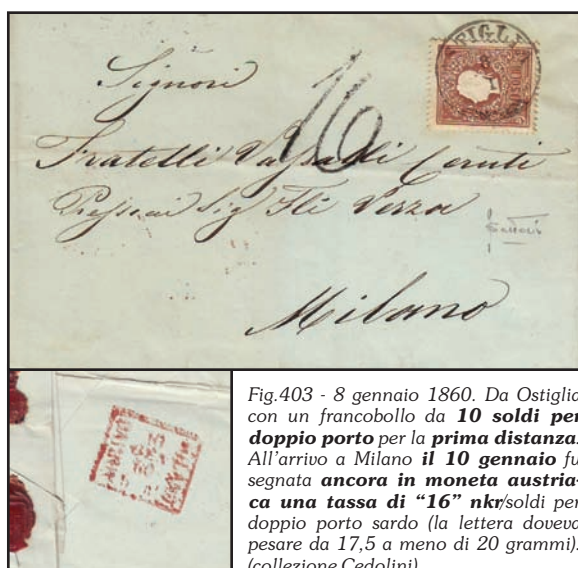 Signori
16
Fratelli Vassalli Ceruti
Presso i Sig Flli Verza
Milano
Fig.403 - 8 gennaio 1860. Da Ostiglia
con un francobollo da 10 soldi per
doppio porto per la prima distanza.
All'arrivo a Milano il 10 gennaio fu
segnata ancora in moneta austria-
ca una tassa di "16" nkr/soldi per
doppio porto sardo (la lettera doveva
pesare da 17,5 a meno di 20 grammi).
(collezione Cedolini)